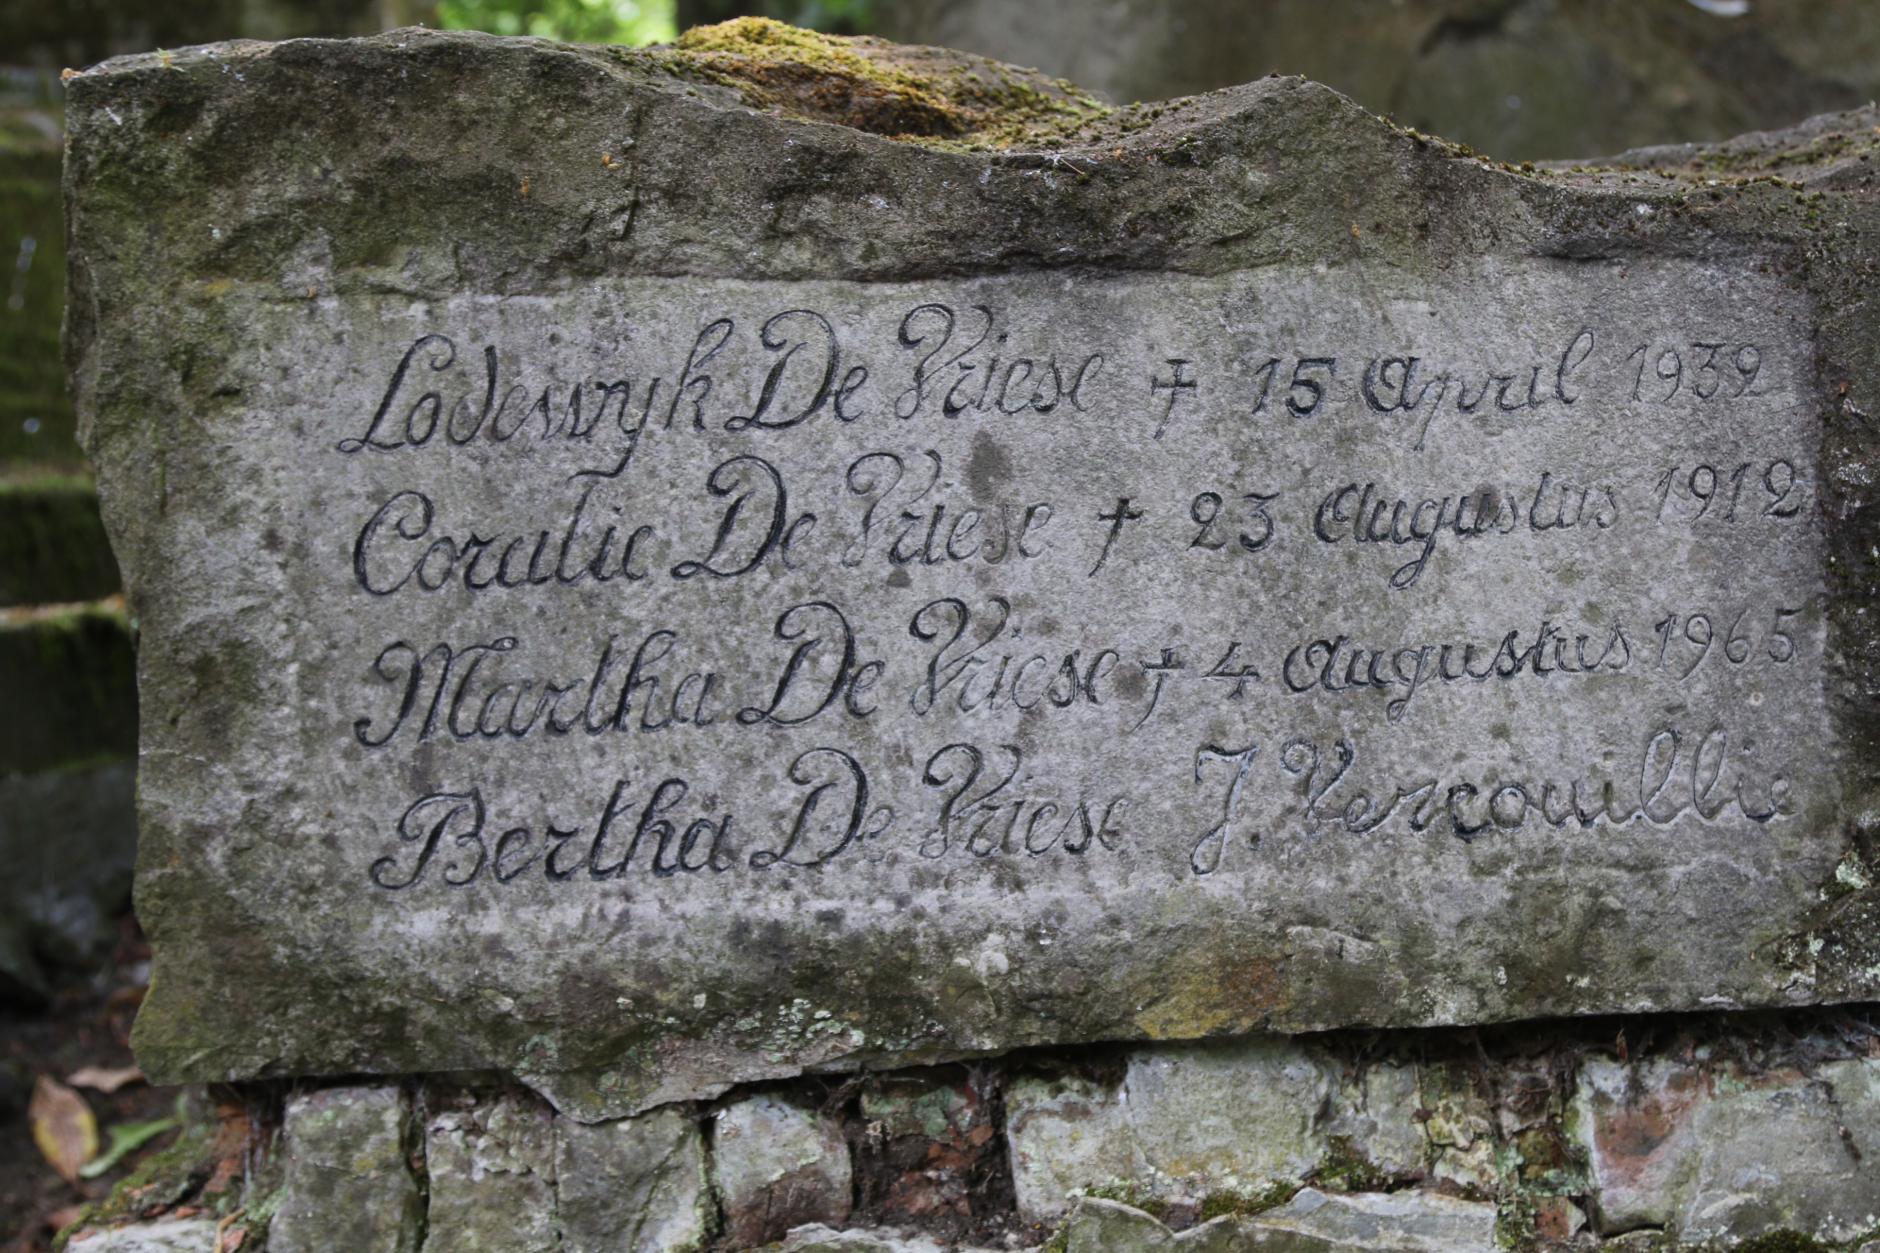 Lodewyk De Vriese † 15 April 1939
Coralie De Vriese † 23 Augustus 1912
Martha De Vriese † 4 Augustus 1965
Bertha De Vriese J. Vercouillie